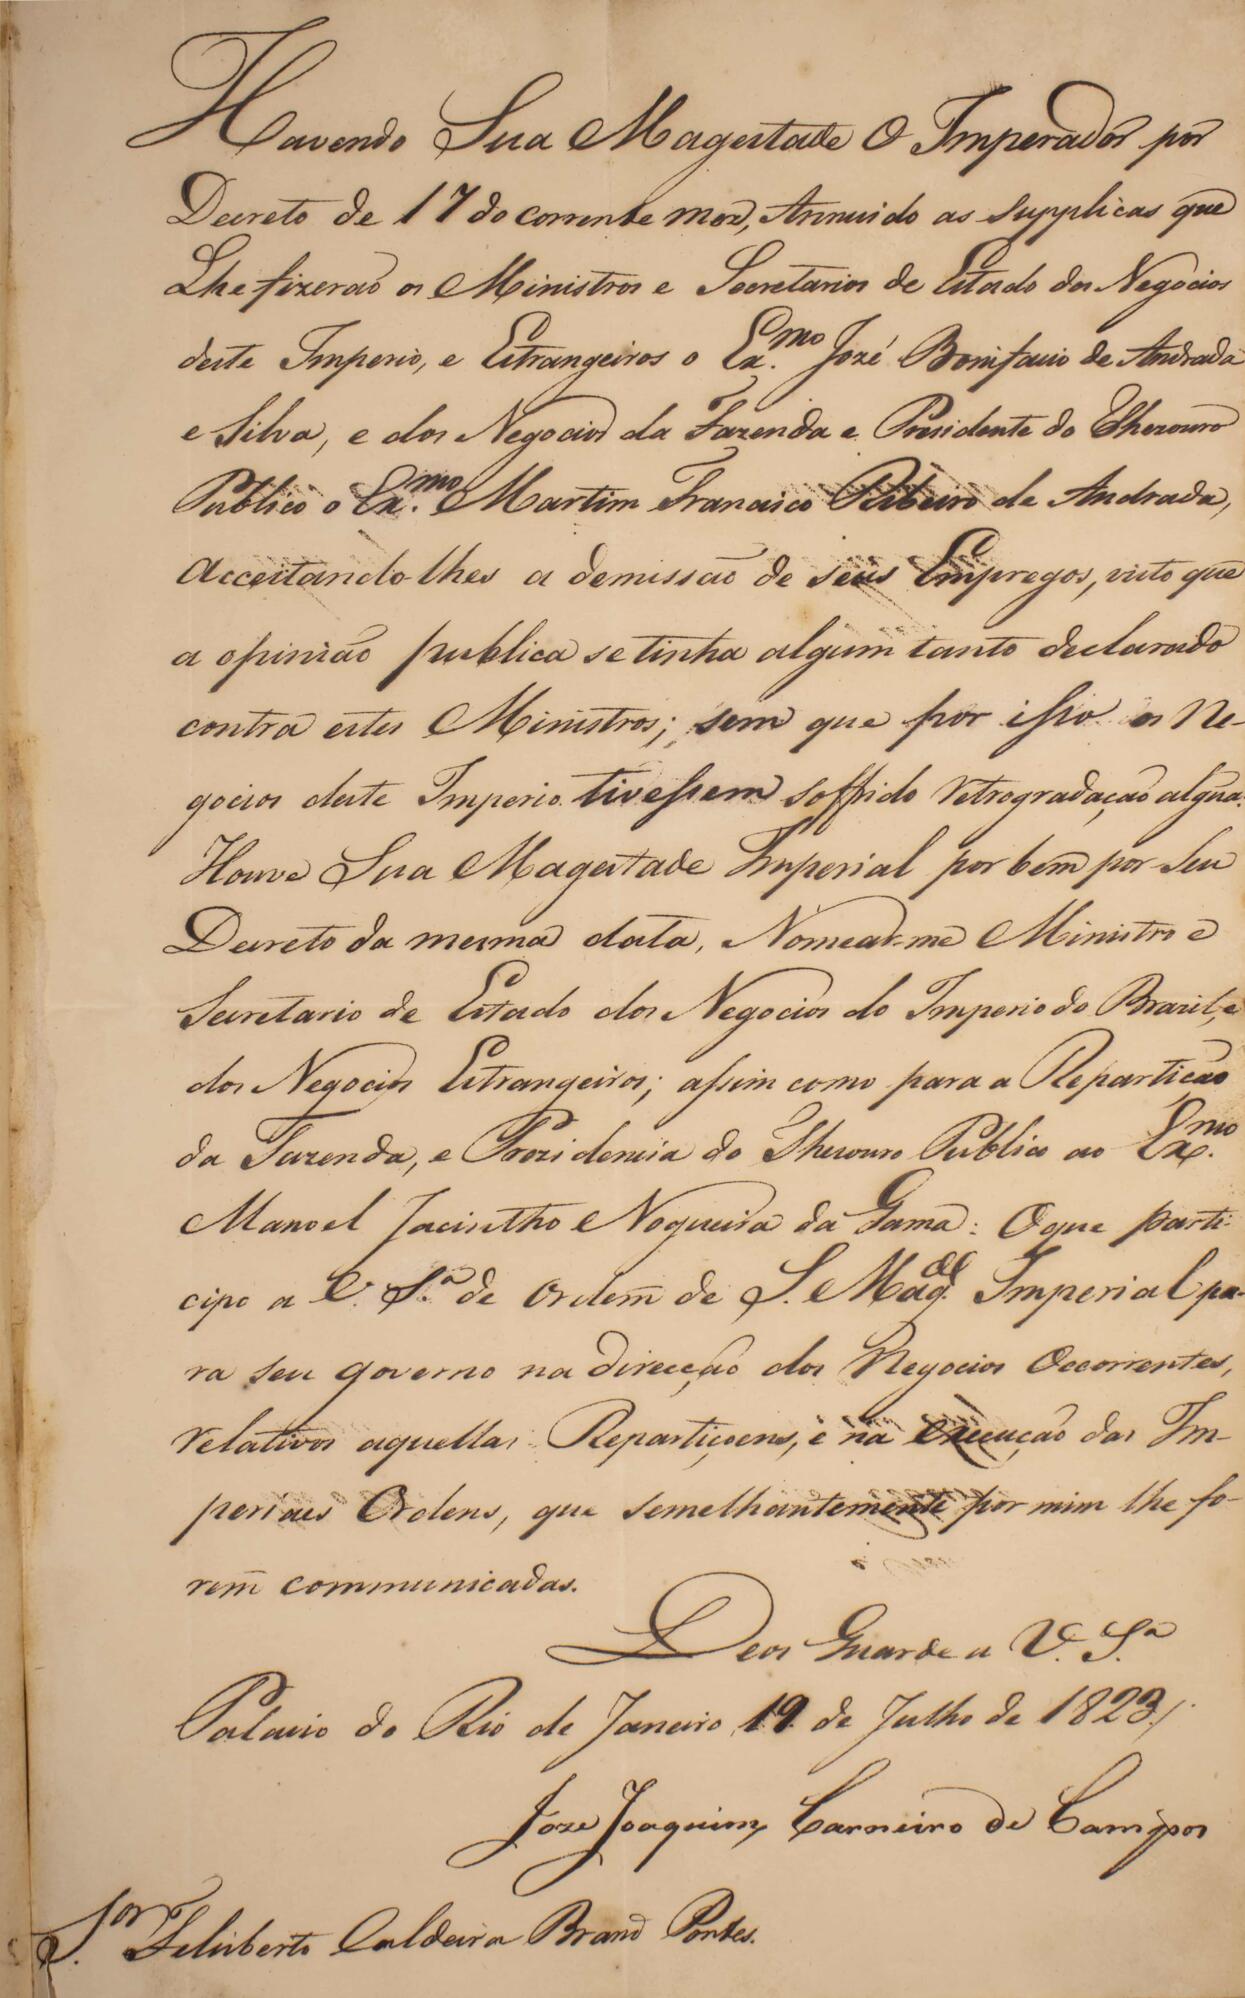 Havendo Sua Magestade O Imperador por
Decreto de 17 do corrente mez, Annuido as supplicas que
Lhe fizerão os Ministros e Secretarios de Estado dos Negocios
deste Imperio, e Estrangeiros o Ex.mo Jozé Bonifacio de Andrada
e Silva, e dos Negocios da Fazenda e Presidente do Thezouro
Publico o Ex.mo Martim Francisco Ribeiro de Andrada,
Acceitando-lhes a demissão de seus Empregos, visto que
a opinião publica se tinha algum tanto declarado
contra estes Ministros; sem que por isso os Ne-
gocios deste Imperio tivessem soffrido retrogradação algũa.
Houve Sua Magestade Imperial por bem por Seu
Decreto da mesma data, Nomear-me Ministro e
Secretario de Estado dos Negocios do Imperio do Brazil, e
dos Negocios Estrangeiros; assim como para a Repartição
da Fazenda, e Prezidencia do Thezouro Publico ao Ex.mo
Manoel Jacintho Nogueira da Gama: O que parti-
cipo a V. S.a de Ordem̃ de S. Mag.de Imperial pa-
ra seu governo na direcção dos Negocios Occorrentes,
relativos aquellas Repartiçoens, e na execução das Im-
periaes Ordens, que semelhantemente por mim lhe fo-
rem̃ communicadas.
Deos Guarde a V. S.a
Palacio do Rio de Janeiro 19 de Julho de 1823/.
Joze Joaquim Carneiro de Campos
S.or Felisberto Caldeira Brant Pontes.